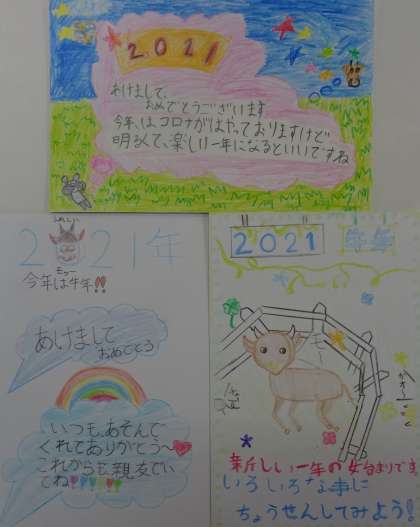 2021
あけまして、
おめでとうございます
今年、はコロナがはやっておりますけど
明るくて、楽しい一年になるといいですね
2021年
モゥー
今年は牛年!!
あけまして
おめでとう
いつも、あそんで
くれてありがとう〜
これからも親友でい
てね!!!!
2021 牛年
モー
新しい一年の始まりです
いろいろな事に
ちょうせんしてみよう!